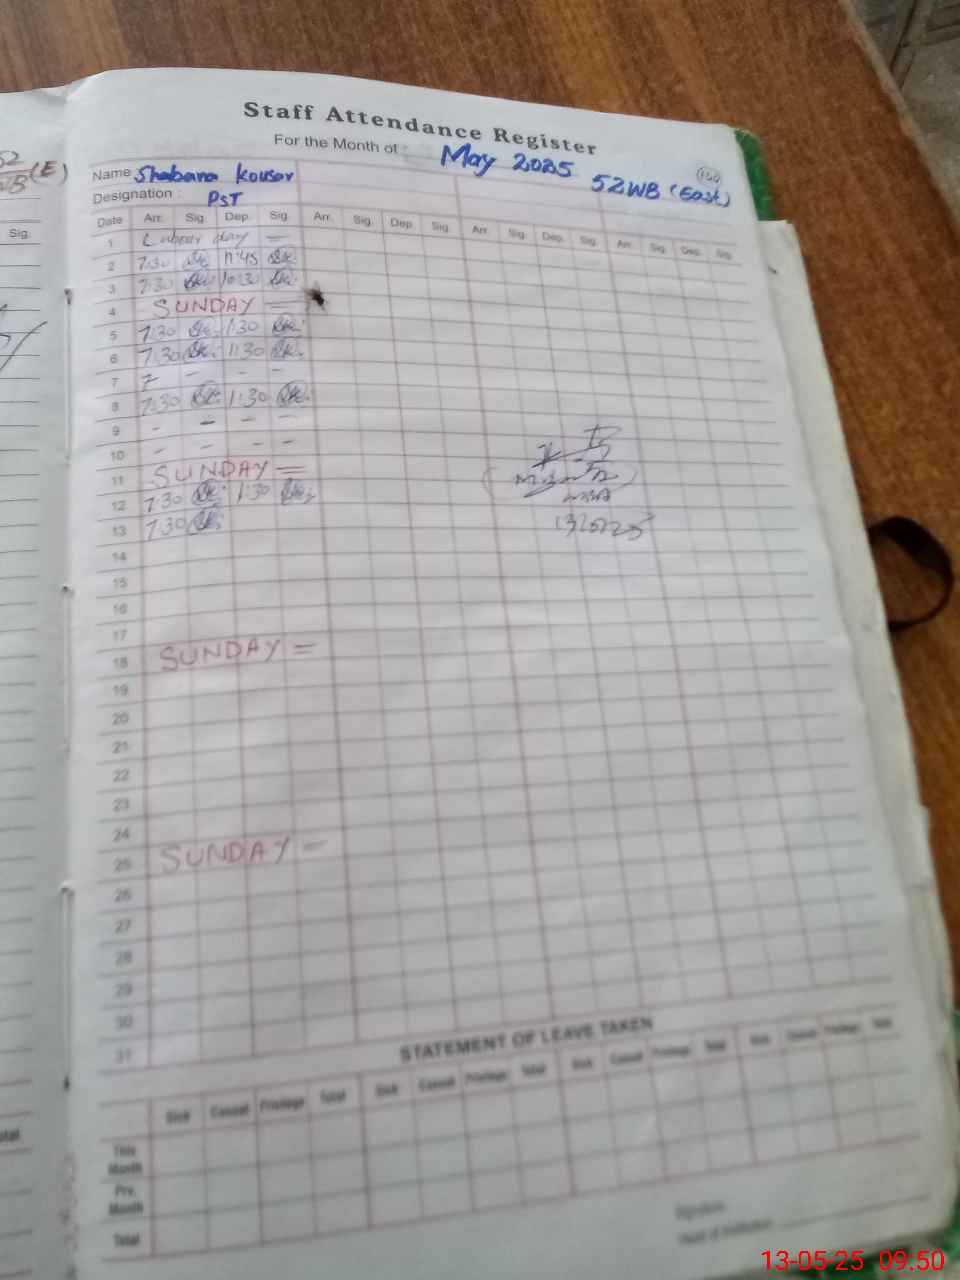 52
(E)
Sig.
Staff Attendance Register
For the Month of : May 2025
Name Shabana Kousar 52WB (East)
Designation : PST
Date Arr. Sig. Dep. Sig. Arr. Sig. Dep. Sig. Arr. Sig. Dep. Sig. Arr. Sig. Dep. Sig.
1 Labour day —
2 7:30 11:45
3 7:30 10:30
4 SUNDAY —
5 7:30 1:30
6 7:30 1:30
7 - - - -
8 7:30 1:30
9 - - - -
10 - - - -
11 SUNDAY =
12 7:30 1:30
13 7:30
14
15
16
17
18 SUNDAY =
19
20
21
22
23
24
25 SUNDAY =
26
27
28
29
30
31
STATEMENT OF LEAVE TAKEN
Sick Casual Privilege Total Sick Casual Privilege Total Sick Casual Privilege Total Sick Casual Privilege Total
This Month
Pre. Month
Total
Signature
Head of Institution
13-05-25 09.50